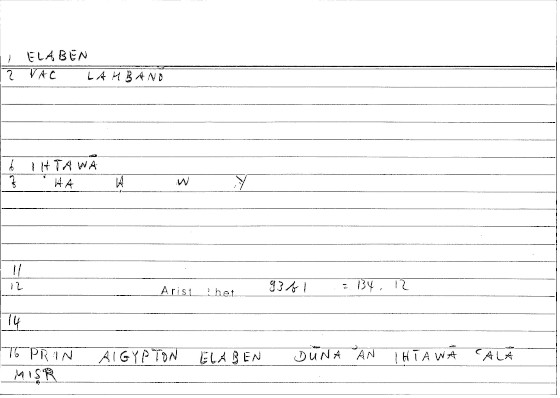 1 ELABEN
2 VAC LAMBANO
6 IḤTAWĀ
8 ḤA W W Y
11
12 Arist rhet 93b1 = 134.12
14
16 PRIN AIGYPTON ELABEN DŪNA ʾAN IḤTAWĀ ʿALĀ
MIṢR